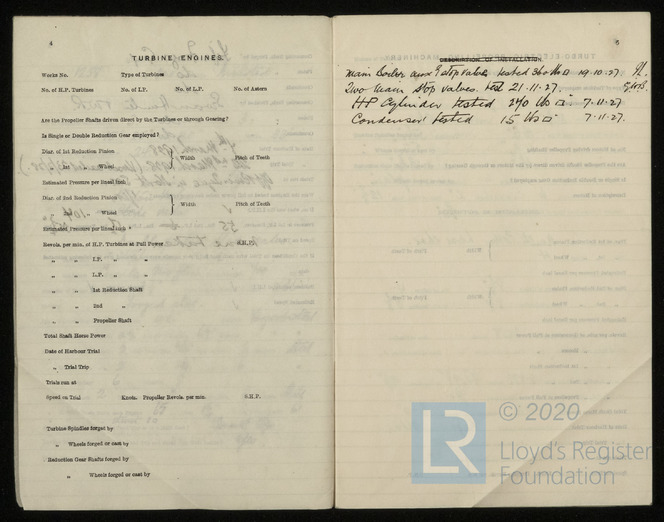 4
TURBINE ENGINES.
Works No. Type of Turbines
No. of H.P. Turbines No. of I.P. No. of L.P. No. of Astern
Are the Propeller Shafts driven direct by the Turbines or through Gearing?
Is Single or Double Reduction Gear employed?
Diar. of 1st Reduction Pinion
Width Pitch of Teeth
„ 1st „ Wheel
Estimated Pressure per lineal inch
Diar. of 2nd Reduction Pinion
Width Pitch of Teeth
„ 2nd „ Wheel
Estimated Pressure per lineal inch
Revols. per min. of H.P. Turbines at Full Power S.H.P.
„ „ I.P. „ „
„ „ L.P. „ „
„ „ 1st Reduction Shaft
„ „ 2nd „
„ „ Propeller Shaft
Total Shaft Horse Power
Date of Harbour Trial
„ Trial Trip
Trials run at
Speed on Trial Knots. Propeller Revols. per min. S.H.P.
Turbine Spindles forged by
„ Wheels forged or cast by
Reduction Gear Shafts forged by
„ Wheels forged or cast by
5
DESCRIPTION OF INSTALLATION.
Main Boiler stop valves tested 360 lbs □ 19.10.27
Two main stop valves. test 21.11.27.
HP Cylinder tested 270 lbs □ 7.11.27.
Condenser tested 15 lbs □ 7.11.27.
© 2020
LR
Lloyd's Register
Foundation